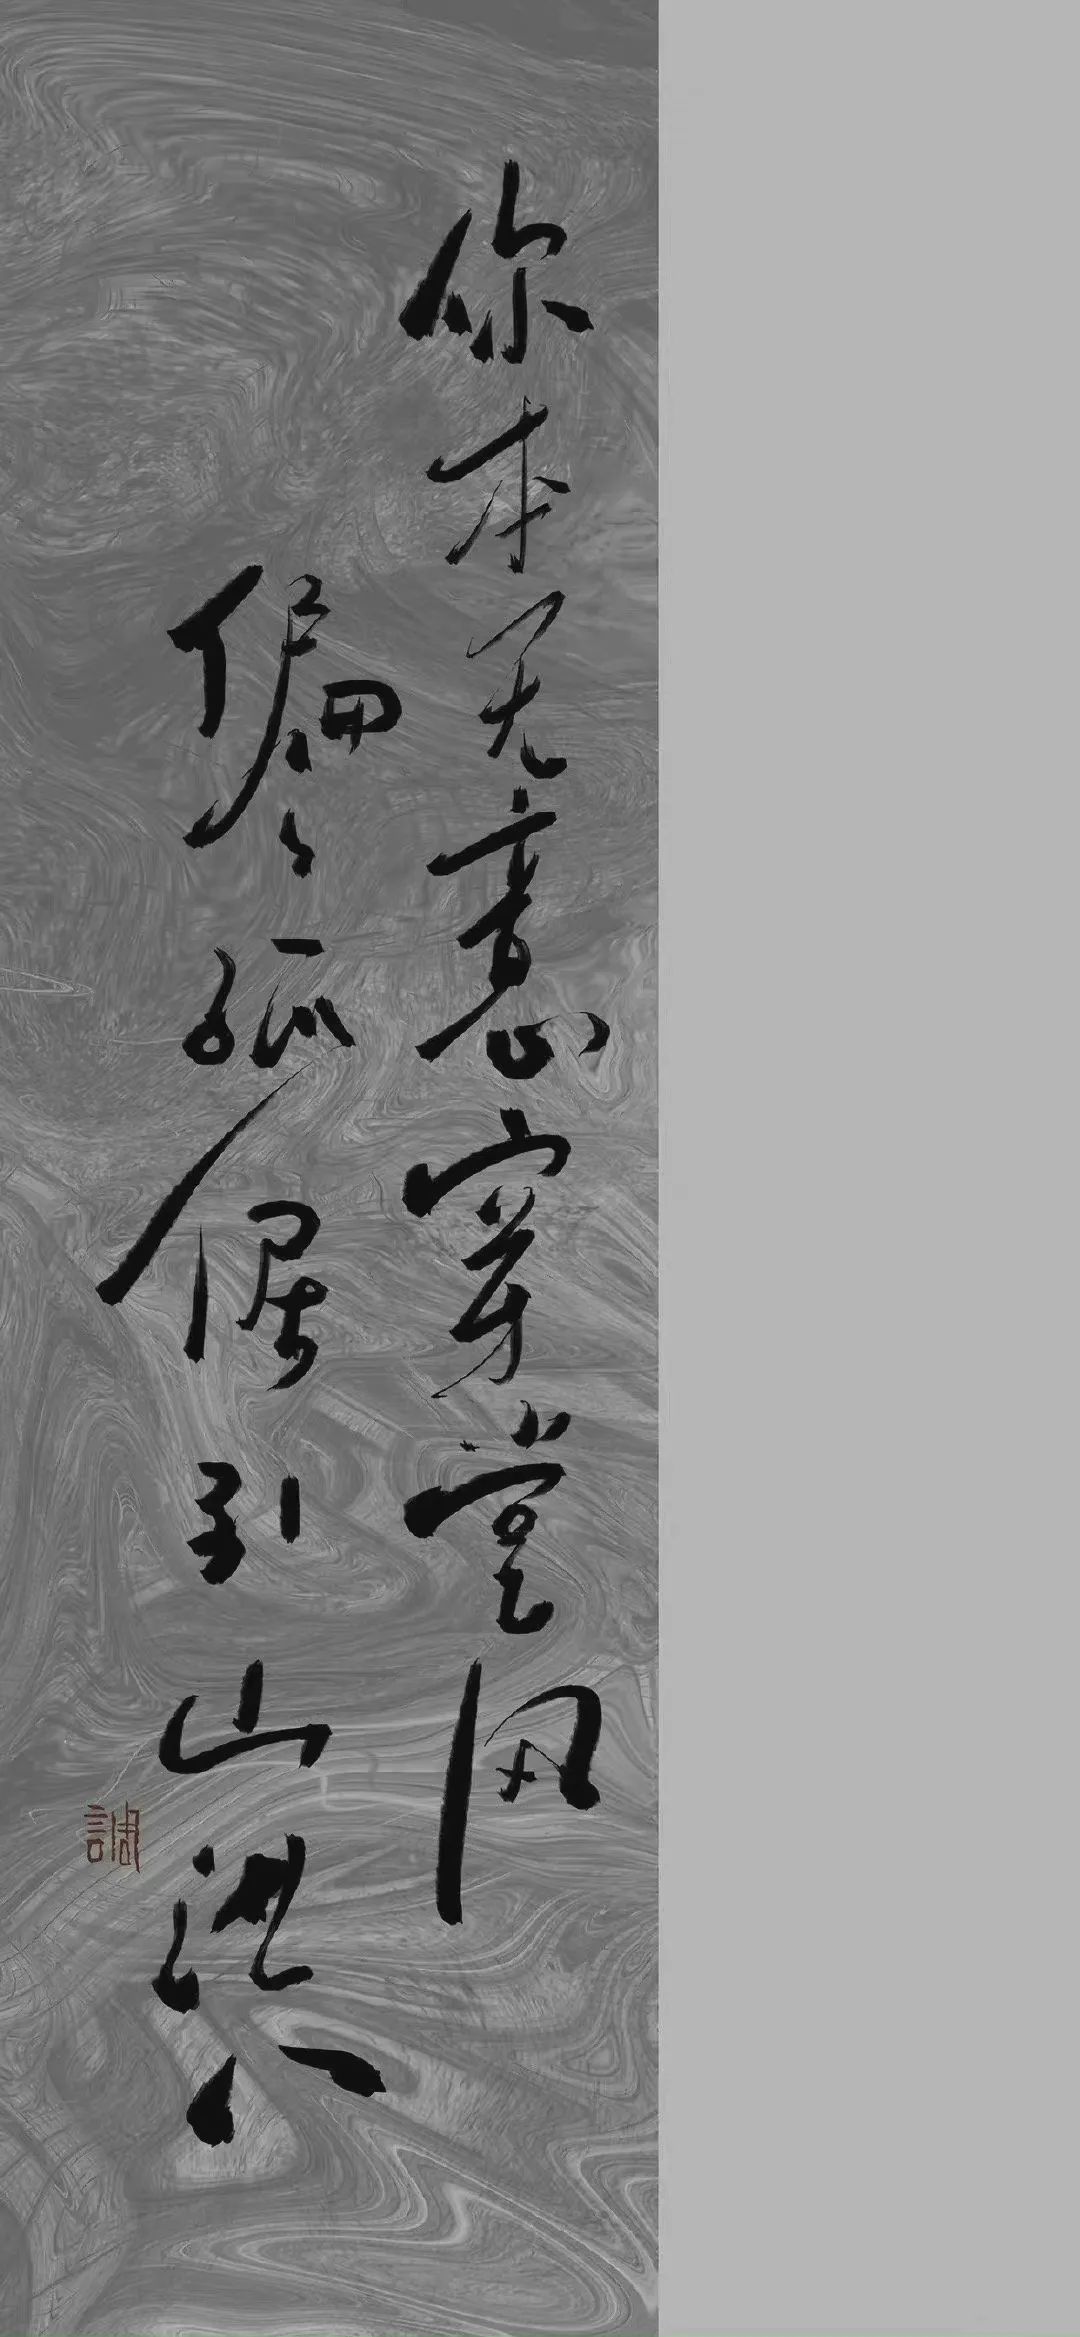 你本无意穿堂风
偏偏孤倨引山洪